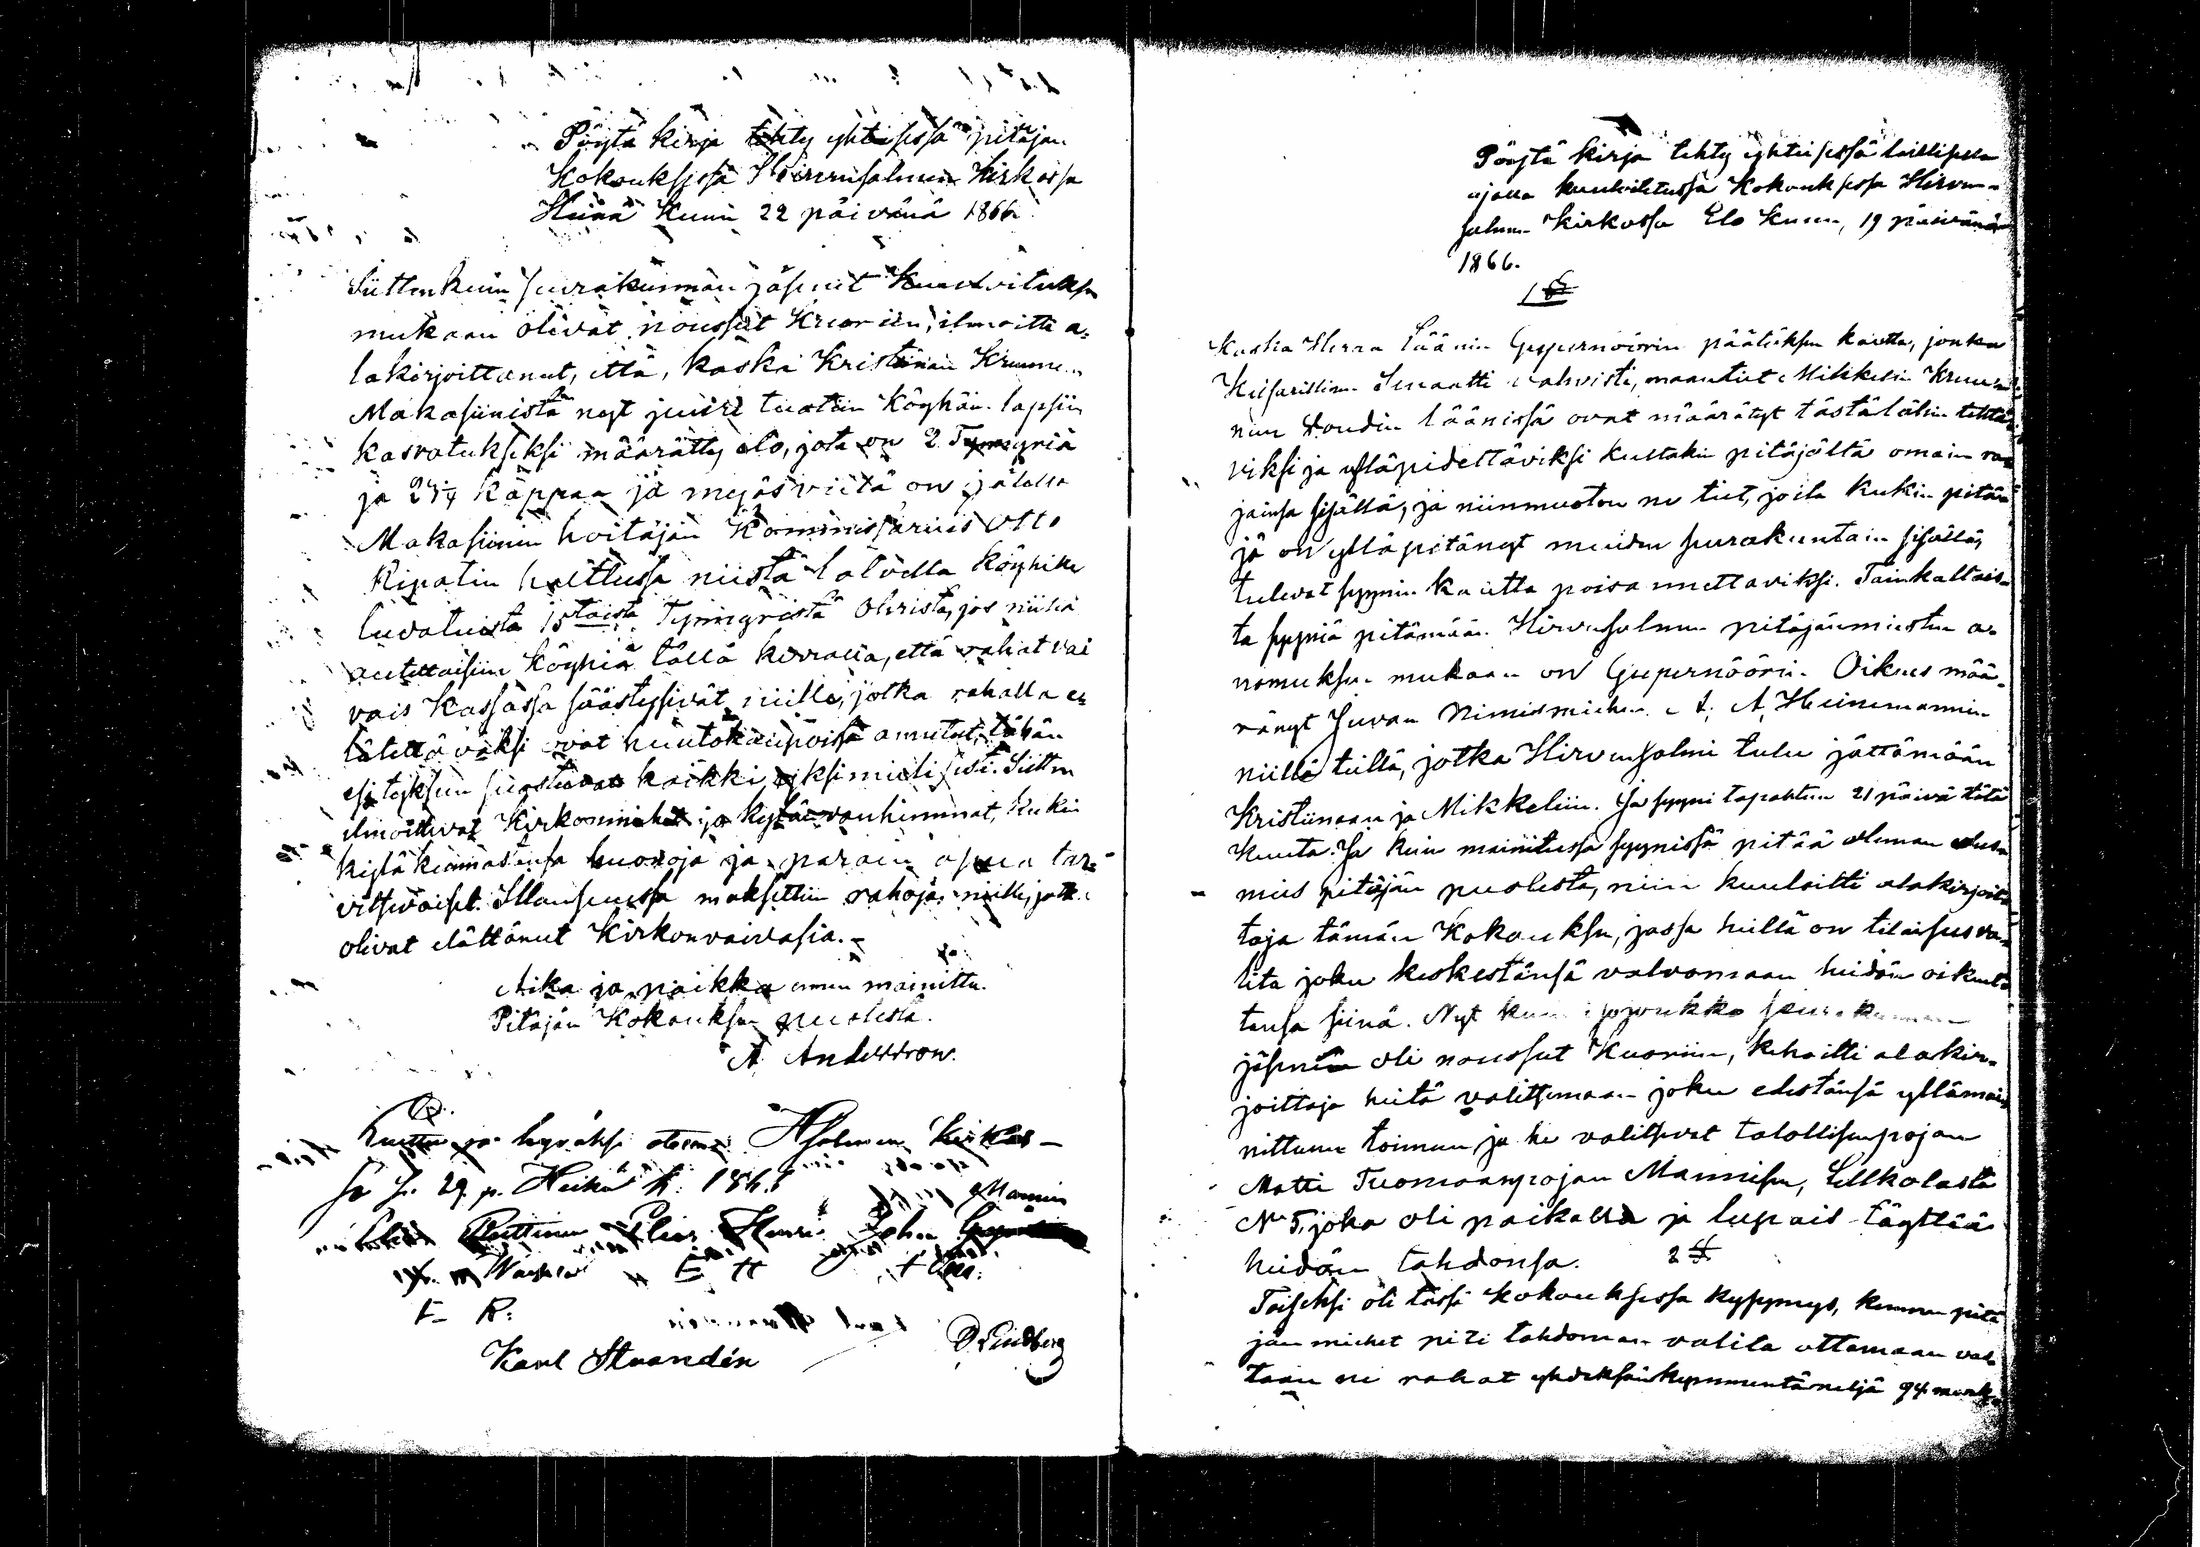 Pöytä kirja tehty yhteisessä pitäjän
Kokouksessa Hirvensalmen Kirkossa
Heinä Kuun 22 päivänä 1866.
Siittenkuin seurakunnan jäsenet Kuuloituksen
mukaan olivat nousseet Kuoriin, ilmoitti a-
lakirjoittanut, että, koska Kristiinan Kruunun
Makasiinista nyt juuri tuotiin köyhäin lapsiin
kasvatukseksi määrätty elo, jota on 2 Tynnyriä
ja 24 1/4 Kappaa ja myös viitä on jälellä
Makasiinin hoitajan Kommissarius Otto
Ripatin hallussa niistä talvella köyhille
luvatuista 15taista Tynnyristä Ohrista, jos niillä
autettaisiin köyhiä tällä kerralla, että rahat vai
vais Kassassa säästyisivät niille, jotka rahalla e-
lätettäväksi ovat huutokaupoissa annetut, tähän
esityksen suostuvat kaikki yksimielisesti. Siitten
ilmoittivat Kirkonmiehet ja kylänvanhimmat, kukin
kyläkunnastansa huonoja ja parain apua tar-
vitsevaiset. Illansuussa maksettiin rahoja niille, jotka
olivat elättäneet Kirkonvaivasia.
Aika ja paikka ennen mainittu.
Pitäjän Kokouksen puolesta.
A Anderson.
Luettu ja hyväksi otettu Hsalmen Kirkos-
sa s. 29 p. Heinä k: 1866
Manninen
Ruttinen Elias Henri John
E H
E R:
Karl Strandén
D Lindberg
Pöytä kirja tehty yhteisessä laillisella
ajalla kuuloitetussa Kokouksessa Hirven-
salmen Kirkossa Elo Kuun, 19 päivänä
1866.
1 §
Koska Herra Läänin Gupernöörin päätöksen kautta, jonka
Keisarillinen Senaatti vahvisti, maantiet Mikkelin Kruunun
nun Voudin läänissä ovat määrätyt tästälähin tehtä
viksi ja ylläpidettäviksi kustakin pitäjältä omain ra
jainsa sisällä, ja niinmuoton ne tiet, joita kukin pitä
jä on ylläpitänyt muiden seurakuntain sisällä,
tulevat syynin kautta poisannettaviksi. Tainkaltais-
ta syyniä pitämään Hirvensalmen pitäjänmiesten a-
nomuksen mukaan on Gupernöörin Oikeus mää-
rännyt Juvan Nimismiehen A. A. Heinemannin
niillä teillä, jotka Hirvensalmi tulee jättämään
Kristiinaan ja Mikkeliin. Ja syyni tapahtuu 21 päivä tätä
Kuuta. Ja kuin mainitussa syynissä pitää oleman edus
mies pitäjän puolesta, niin kuuloitti alakirjoit
taja tämän Kokouksen, jossa heillä on tilaisuus va-
lita joku keskestänsä valvomaan heidän oikeut
tansa siinä. Nyt kuin isojoukko seurakunnan
jäseniä oli noussut Kuoriin, kehoitti alakir-
joittaja heitä valitsemaan joku edestänsä yllämai
nittuun toimeen, ja he valitsivat talollisenpojan
Matti Tuomaanpojan Mannisen, Lellkolasta
No 5, joka oli paikalla ja lupais täyttää
heidän tahdonsa.
2 §
Toiseksi oli tässä kokouksessa kysymys, kenen pitä
jän miehet piti tahdomaan valita ottamaan vas
taan ne rahat yhdeksänkymmentäneljä 94 mark-